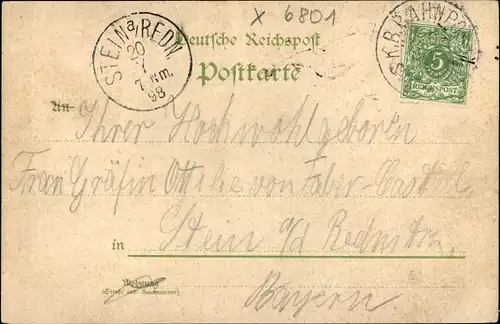 x 6801
STEIN a/REDN.
20
7
7. Nm.
98
K.B. BAHNPOST
Deutsche Reichspost
Postkarte
5
REICHSPOST
An
Ihrer Hochwohlgeboren
Frau Gräfin Ottilie von Faber-Castell
Stein a/d Rednitz,
in
Bayern
Wohnung
(Straße und Hausnummer)